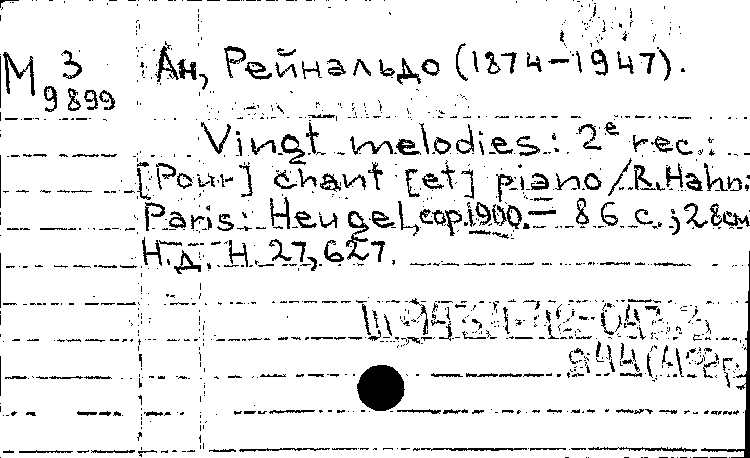 М 3
9899
Ан, Рейнальдо (1874-1947).
Vingt melodies: 2e rec.:
[Pour] chant [et] piano/R.Hahn:
Paris: Heugel, cop.1900.— 86 с.; 28см
Н.д. H. 27,627.